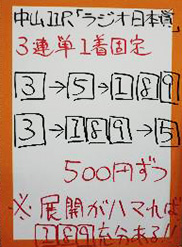 中山11R「ラジオ日本賞」
3連単1着固定
3→5→189
3→189→5
500円ずつ
※展開がハマれば
189充分ある!!